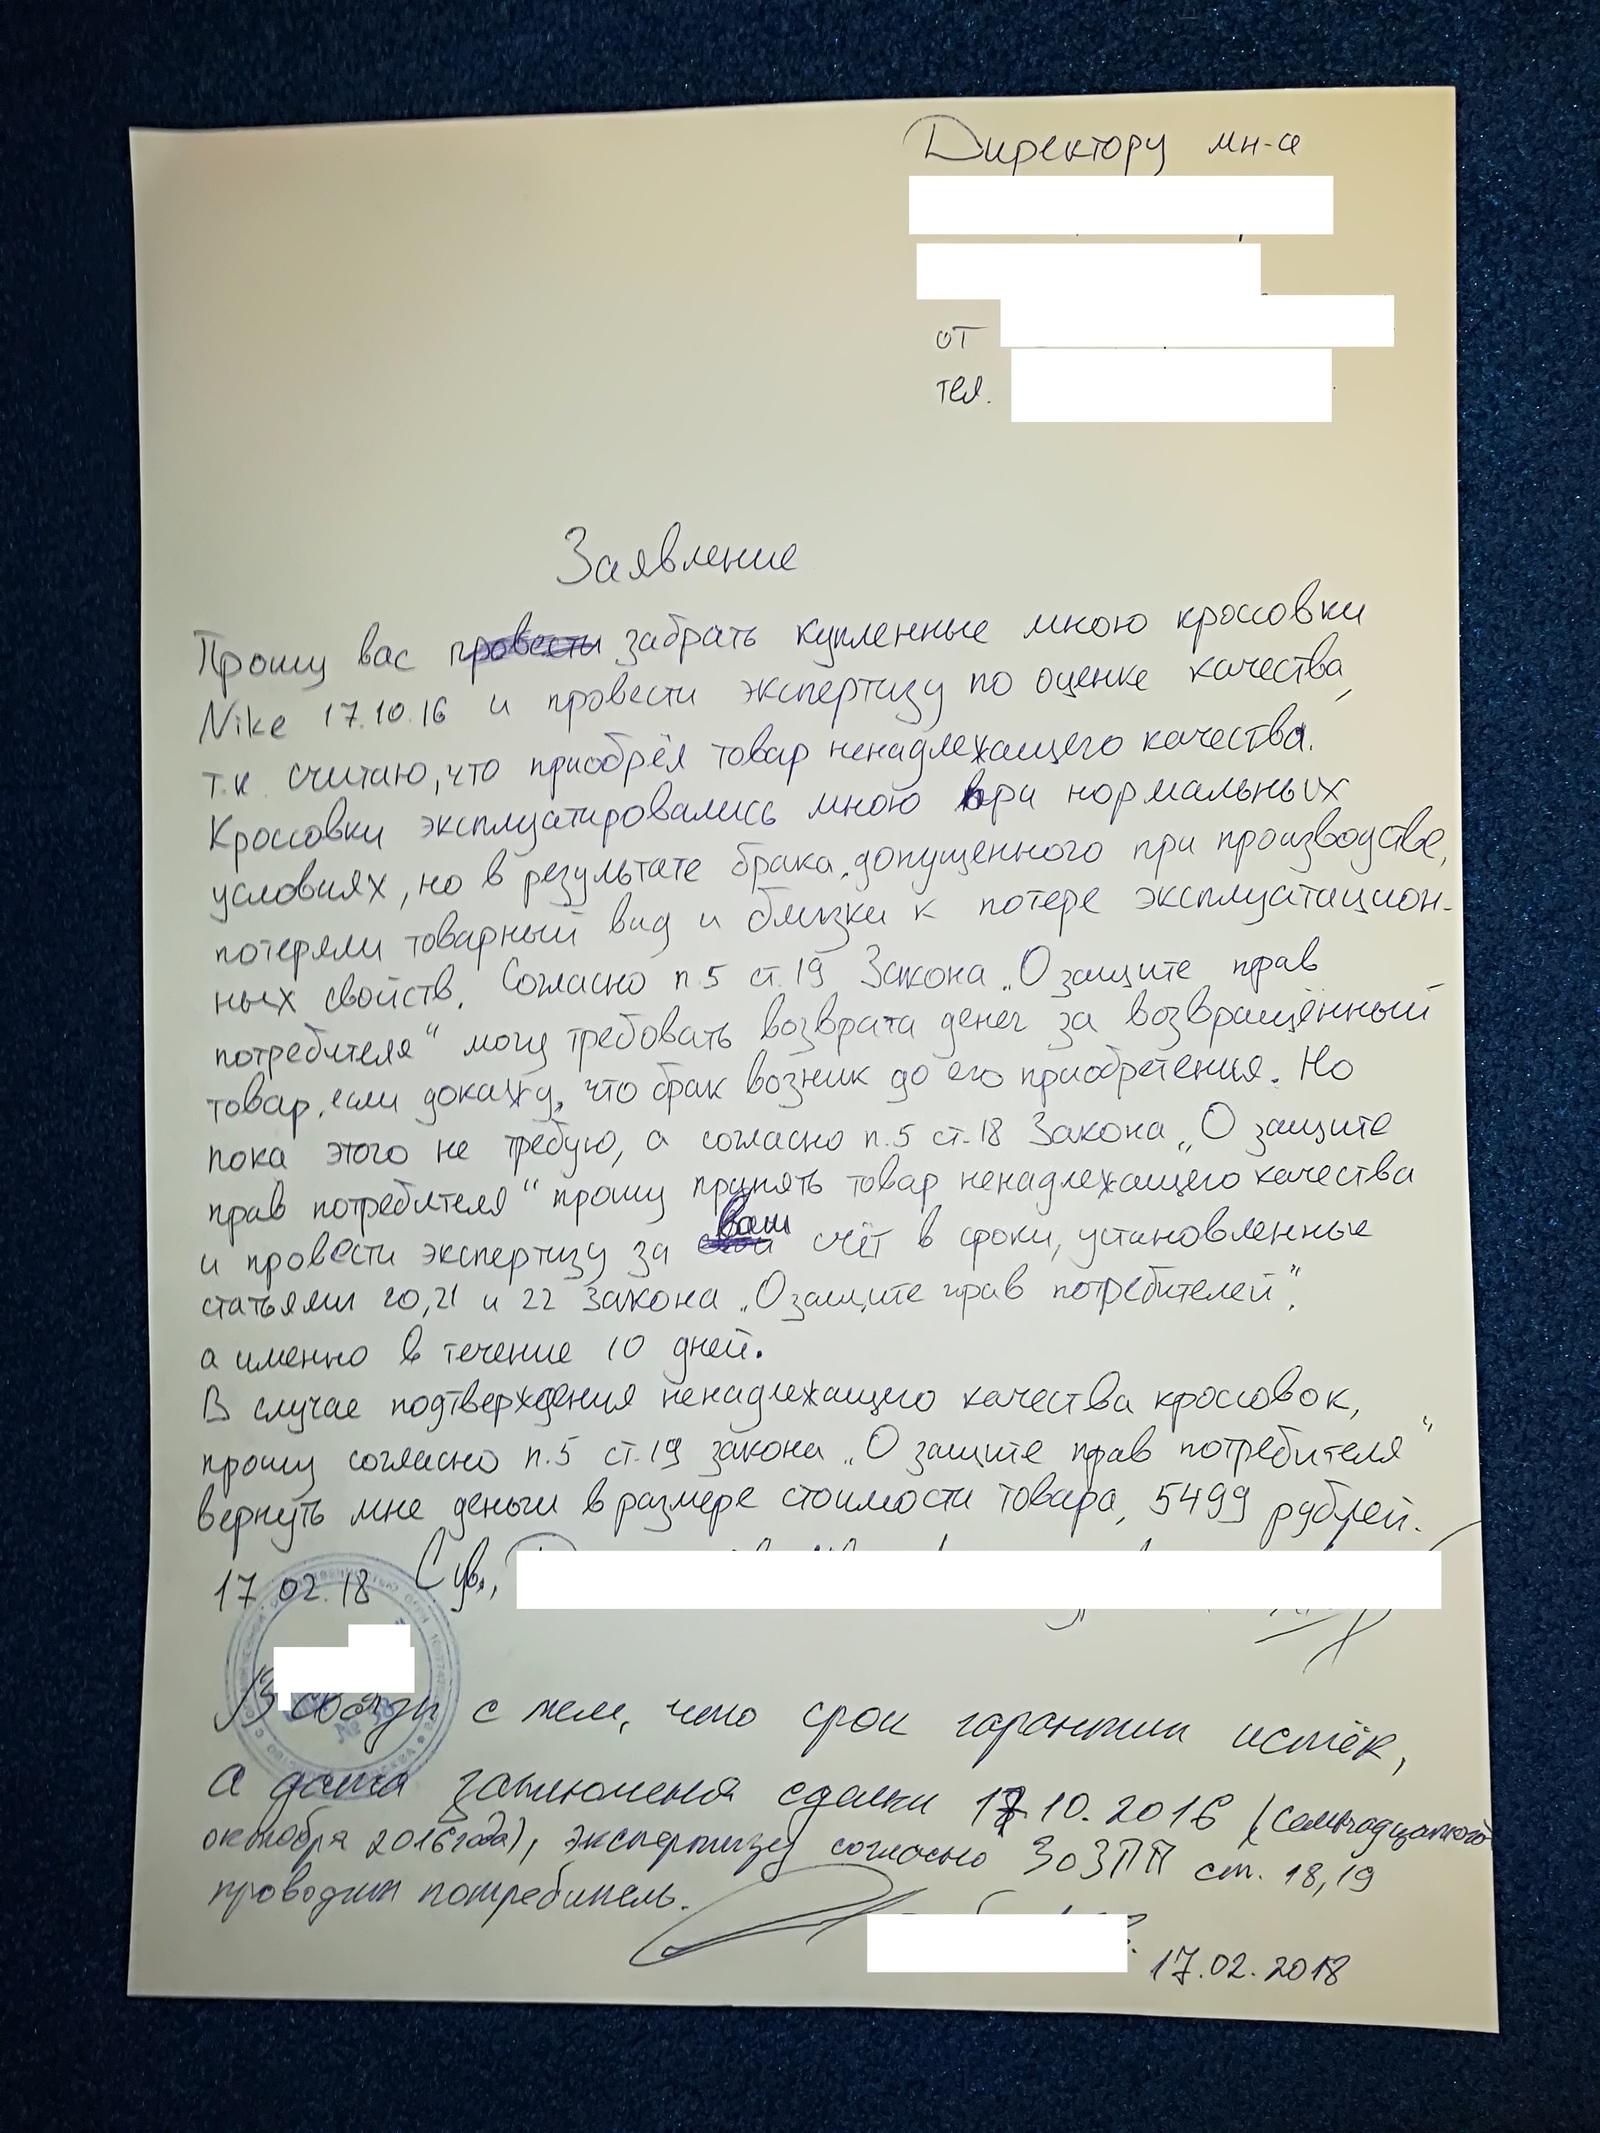 Директору мн-а
от
тел.
Заявление
Прошу вас провести забрать купленные мною кроссовки
Nike 17.10.16 и провести экспертизу по оценке качества,
т.к. считаю, что приобрёл товар ненадлежащего качества.
Кроссовки эксплуатировались мною при нормальных
условиях, но в результате брака, допущенного при производстве,
потеряли товарный вид и близки к потере эксплуатацион-
ных свойств. Согласно п.5 ст.19 Закона „О защите прав
потребителя“ могу требовать возврата денег за возвращённый
товар, если докажу, что брак возник до его приобретения. Но
пока этого не требую, а согласно п.5 ст.18 Закона „О защите
прав потребителя“ прошу принять товар ненадлежащего качества
и провести экспертизу за ваш счёт в сроки, установленные
статьями 20, 21 и 22 Закона „О защите прав потребителей“,
а именно в течение 10 дней.
В случае подтверждения ненадлежащего качества кроссовок,
прошу согласно п.5 ст.19 закона „О защите прав потребителя“
вернуть мне деньги в размере стоимости товара, 5499 рублей.
17.02.18 С ув.,
В связи с тем, что срок гарантии истёк,
а дата заключения сделки 17.10.2016 (семнадцатого
октября 2016 года), экспертизу согласно ЗоЗПП ст. 18, 19
проводит потребитель.
17.02.2018